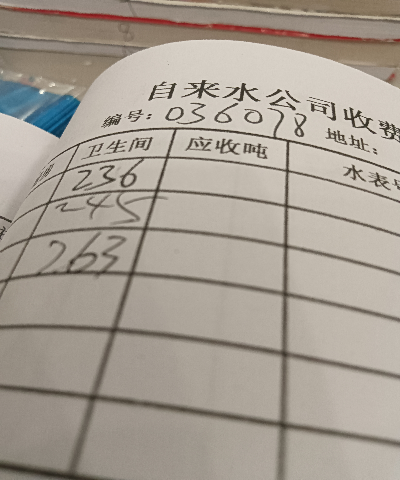 自来水公司收费
编号: 036078 地址:
间 卫生间 应收吨 水表
236
245
263